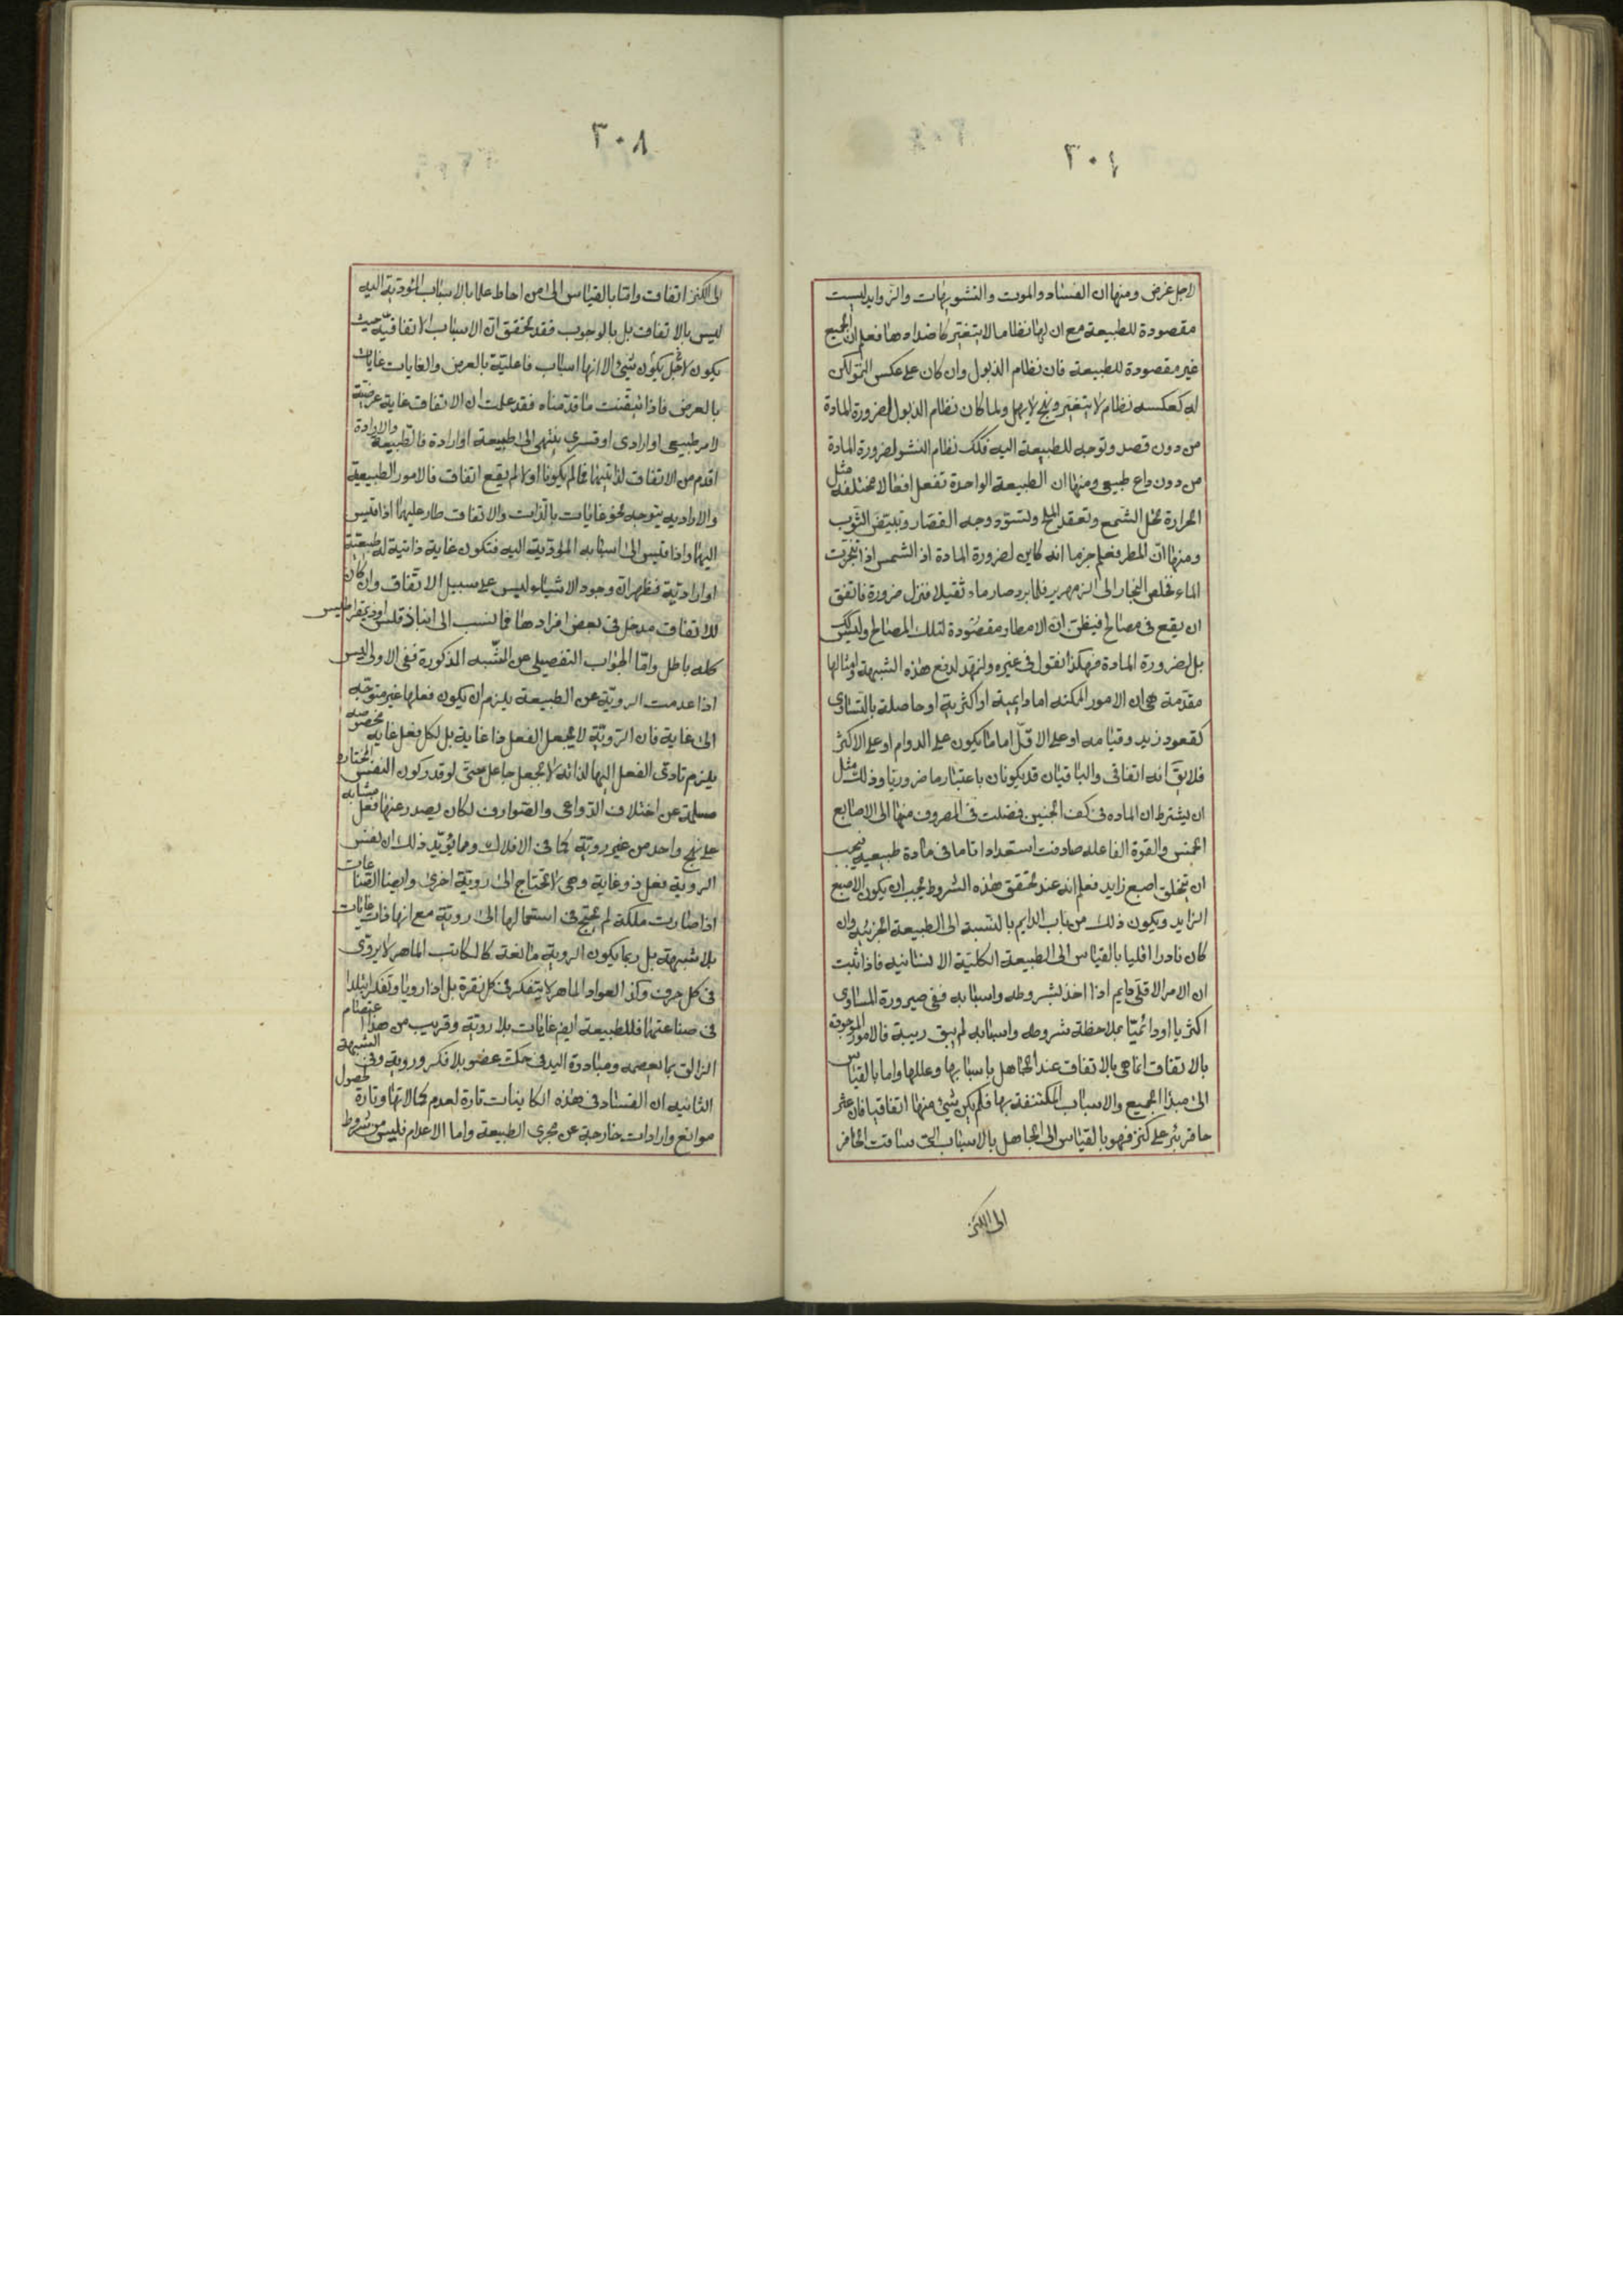 ٣٠٤
لاجل غرض ومنها ان الفساد والموت والتشويهات والزوايد ليست
مقصودة للطبيعة مع ان لها نظاما لا يتغير كاضدادها فعلم ان الجميع
غير مقصودة للطبيعة فان نظام الذبول وان كان على عكس النمو لكن
له كعكسه نظام لا يتغير ونهج لا يهمل ولما كان نظام الذبول لضرورة المادة
من دون قصد وتوجه للطبيعة اليه فكك نظام النشو لضرورة المادة
من دون داع طبيعى ومنها ان الطبيعة الواحدة تفعل افعالا مختلفة مثل
الحرارة تحل الشمع وتعقد الملح وتسود وجه القصار وتبيض الثوب
ومنها ان المطر فعلم جزما انه كاين لضرورة المادة اذ الشمس اذا تبخرت
الماء فخلص البخار الى الزمهرير فلما برد صار ماء ثقيلا فنزل ضرورة فاتفق
ان يقع فى مصالح فيظن ان الامطار مقصودة لتلك المصالح وليس كك
بل لضرورة المادة فهكذا نقول فى غيره ولنمهد لدفع هذه الشبهة وامثالها
مقدمة هى ان الامور الممكنه اما دايمية او اكثرية او حاصلة بالتساوى
كقعود زيد وقيامه او على الاقل اما ما يكون على الدوام او على الاكثر
فلا يق انه اتفاقى والباقيان قد يكونان باعتبار ما ضروريا وذلك مثل
ان يشترط ان الماده فى كف الجنين فضلت فى المصروف منها الى الاصابع
الخمس والقوة الفاعله صادفت استعدادا تاما فى مادة طبيعيه فيجب
ان يتخلق اصبع زايد فعلم انه عند تحقق هذه الشروط يجب ان يكون الاصبع
الزايد ويكون ذلك من باب الدايم بالنسبة الى الطبيعة الجزئيه وان
كان نادرا اقليا بالقياس الى الطبيعة الكلية الانسانيه فاذا ثبت
ان الامر الاقلى دايم اذا اخذ بشروطه واسبابه ففى صيرورة المساوى
اكثريا او دائميا بملاحظة شروطه واسبابه لم يبق ريبة فالامور الموجودة
بالاتفاق انما هى بالاتفاق عند الجاهل باسبابها وعللها واما بالقياس
الى مبدا الجميع والاسباب المكتنفة بها فلم يكن شئ منها اتفاقيا فان عثر
حافر بئر على كنز فهو بالقياس الى الجاهل بالاسباب التى ساقت الحافر
الى الكنز
٣٠٨
الى الكنز اتفاق واما بالقياس الى من احاط علما بالاسباب المؤدية اليه
ليس بالاتفاق بل بالوجوب فقد تحقق ان الاسباب الاتفاقية حيث
يكون لاجل يكون شئ الا انها اسباب فاعلية بالعرض والغايات غايات
بالعرض فاذا تيقنت ما قدمناه فقد علمت ان الاتفاق غاية عرضية
لامر طبيعى او ارادى او قسرى ينتهى الى طبيعة او ارادة فالطبيعة والارادة
اقدم من الاتفاق لذاتيهما فما لم يكونا اولا لم يقع اتفاق فالامور الطبيعية
والاراديه يتوجه نحو غايات بالذات والاتفاق طار عليهما اذا قيس
اليهما واذا قيس الى اسبابه المؤدية اليه فتكون غاية ذاتية له طبيعية
او ارادية فظهر ان وجود الاشياء ليس على سبيل الاتفاق وان كان
للاتفاق مدخل فى بعض افرادها فما نسب الى انباذقلس او ذيمقراطيس
كله باطل واما الجواب التفصيلى عن الشبه المذكورة ففى الاولى ليس
اذا عدمت الروية عن الطبيعة يلزم ان يكون فعلها غير متوجه
الى غاية فان الروية لا تجعل الفعل ذا غاية بل لكل فعل غاية مخصوصه
يلزم تادى الفعل اليها لذاته لا بجعل جاعل حتى لو قدر كون النفس المختاره
مسلمة عن اختلاف الدواعى والصوارف لكان يصدر عنها فعل متشابه
على نهج واحد من غير روية كما فى الافلاك ومما يؤيد ذلك ان نفس
الروية فعل ذو غاية وهى لا تحتاج الى روية اخرى وايضا الصناعات
اذا صارت ملكة لم يحتج فى استعمالها الى روية مع انها ذات غايات
بلا شبهة بل ربما يكون الروية مانعة كالكاتب الماهر لا يروى
فى كل حرف وكذا العواد الماهر لا يتفكر فى كل نقرة بل اذا رويا وتفكرا تبلدا
فى صناعتهما فللطبيعة ايضا غايات بلا روية وقريب من هذا اعتصام
الزالق بما يعصمه ومبادرة اليد فى حكة عضو بلا فكر وروية وفى الشبهة
الثانيه ان الفساد فى هذه الكاينات تارة لعدم كمالاتها وتارة لحصول
موانع وارادات خارجة عن مجرى الطبيعة واما الاعدام فليس من شروط